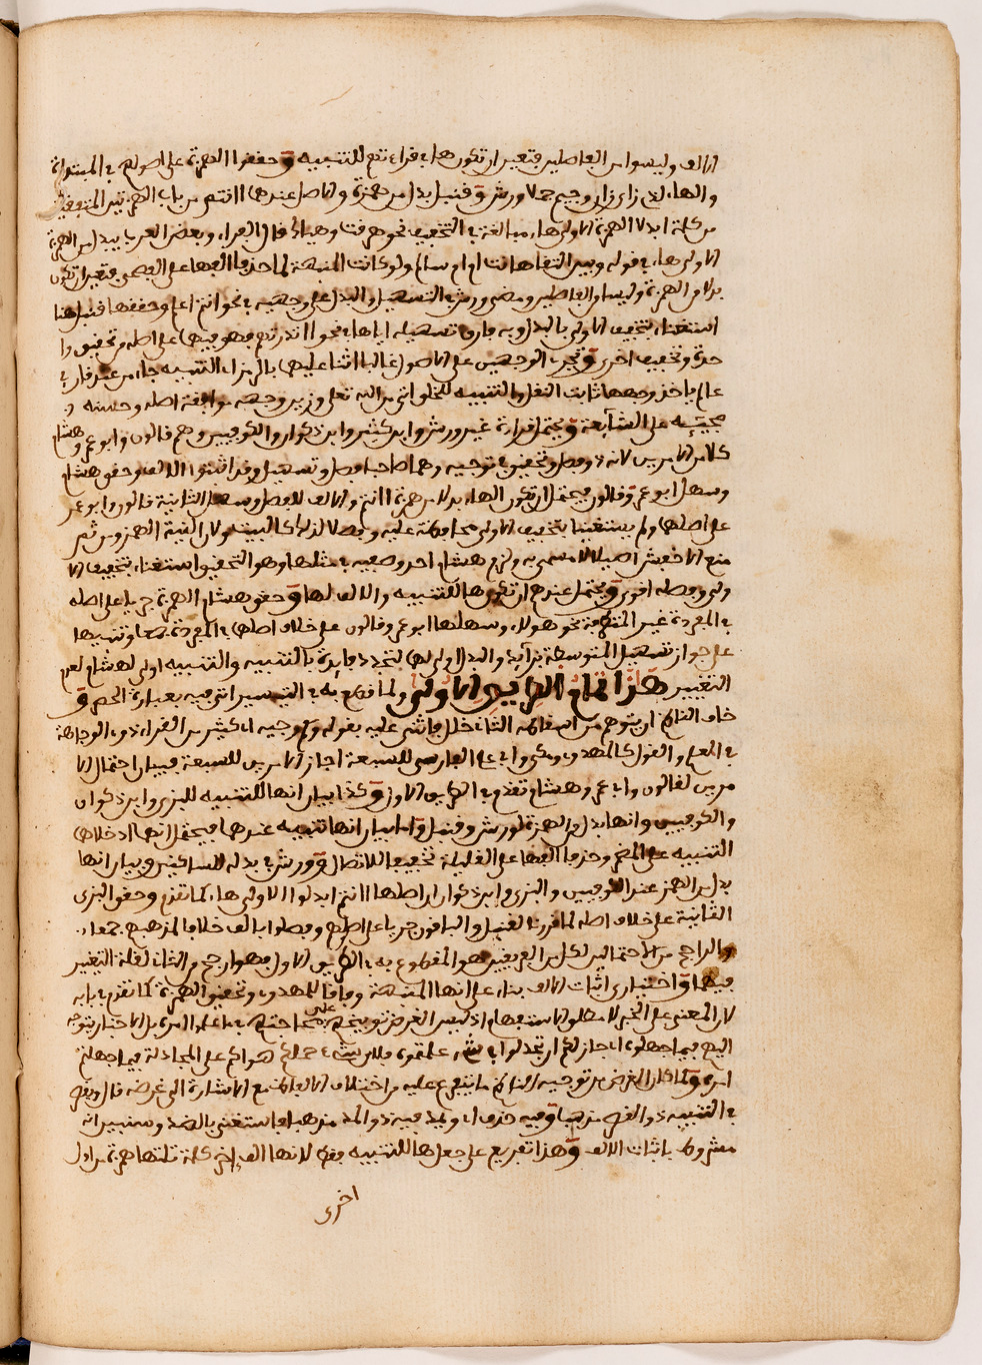 الالف وليسوا من الفاصلين فتعين ان تكون هاء في قراءتهم للتنبيه وحققوا الهمزة على اصولهم في المبتداة
والهاء لدى زاى زان وجيم جملا ورش وقنبل بدل من همزة والاصل عندهما اانتم من باب الهمزتين المتفقتين
من كلمة ابدلا الهمزة الاولى هاء مبالغة في التخفيف نحو هرقت وهياك قال الفراء وبعض العرب يبدل من الهمزة
الاولى هاء في قوله وبين النقا هاانت ام ام سالم ولو كانت المنبهة لما حذفا الفها على الفصحى فتعين ان تكون
بدلا من الهمزة وليسا من الفاصلين ومضى ورش في التسهيل والبدل على وجهيه في نحو اانتم اعلم وحققها قنبل هنا
استغناء بتخفيف الاولى بالبدل وبه فارق تسهيله اياها في نحو اانذرتهم فهو فيها على اصله من تحقيق وا
حدة وتخفيف اخرى وتجرى الوجهين على الاصول غالبا اثنا عليها بالرمز اى التنبيه جاء من عند قارى
عالم ياخذ وجهها ثابت النقل والتنبيه للمخلوق من الله تعلى وزين وجهه موافقة اصله وحسنه
مجيئه على الشائعة ويحتمل قراءة غير ورش وابن كثير وابن ذكوان والكوفيين وهم قالون وابو عمرو وهشام
كلا من الامرين لانه ذو فصل وتحقيق في توجيه وهما صاحبا فصل وتسهيل وقد اثبتوا الالف وحقق هشام
وسهل ابو عمرو وقالون فيحتمل ان تكون الهاء بدلا من همزة اانتم والالف للفصل وسهل الثانية قالون وابو عمرو
على اصلهما ولم يستغنيا بتخفيف الاولى محافظة عليه وفصلا لذلك كالبيت ولان النية الهمز ومن ثم
منع الاخفش اصيلالا مسمى به ولزم هشام احد وجهيه في مثلها وهو التحقيق استغناء بتخفيف الا
ولى وفصله اقوى ويحتمل عندهم ان تكون هاء للتنبيه والالف لها وحقق هشام الهمزة جريا على اصله
في المفردة غير المتطرفة نحو هولاء وسهلها ابو عمرو وقالون على خلاف اصلهما في المفردة جمعا وتنبيها
على جواز تسهيل المتوسطة بزائد والبدل اولى لهما لتجدد فائدة بالتنبيه والتنبيه اولى لهشام لعدم
التغيير هذا تمام الطريق الاولى ولما قطع به في التيسير اتى فيه بعبارة الحصر و
خاف الناظم ان يتوهم من اسقاطه الثانى خلل فاثنى عليه بقوله وكم وجيه اى كثير من القراء ذوى الوجاهة
في العلم والفول كالمهدوى ومكى وابى على الفارسى للسبعة اجاز الامرين للسبعة فبيان احتمال الا
مرين لقالون وابى عمرو وهشام تقدم في الطريق الاول وكذا بيان انها للتنبيه للبزى وابن ذكوان
والكوفيين وانها بدل من الهمزة لورش وقنبل واما بيان انها تنبيه عندهما فيحتمل انهما ادخلا ها
التنبيه على المضمر وحذفا الفها على القليلة تخفيفا للاتصال وورش في بدله للساكنين وبيان انها
بدل من الهمز عند الكوفيين والبزى وابن ذكوان ان اصلها اانتم ابدلوا الاولى هاء كما تقدم وحقق البزى
الثانية على خلاف اصله لما قررنا لقنبل والباقون جريا على اصلهم وفصلوا بالف خلافا لمذهبهم جمعا
والراجح من الاحتمالين لكل من الفريقين هو المقطوع به في الطريق الاول فهو ارجح من الثانى لقلة التغيير
فيهما واختيارى اثبات الالف بناء على انها المنبهة وفاقا للمهدوى وتحقيق الهمزة كما تقدم في بابه
لان المعنى على الخبر لا مطلق الاستفهام اذ ليس الغرض توبيخهم على محاجتهم في ما علموا لمرة بل الاخبار بتوجه
اليهم فيما جهلوه اى جاز لكم ان تجادلوا في شىء علمتموه فلاى شىء حملكم هواكم على المجادلة فيما جهلتم
امره ولما كان الغرض من توجيه الناظم ما يتفرع عليه من اختلاف الالفاظ تتبع الاشارة الى غرضه قال ويقصر
في التنبيه ذو القصر مذهبا وفيه حذف اى ويمد فيه ذو المد مذهبا فاستغنى بالضد وسنبين انه
مشروط باثبات الالف وهذا تفريع على جعلها للتنبيه فقط لانها الف اخر كلمة تلتها همزة من اول
اخرى